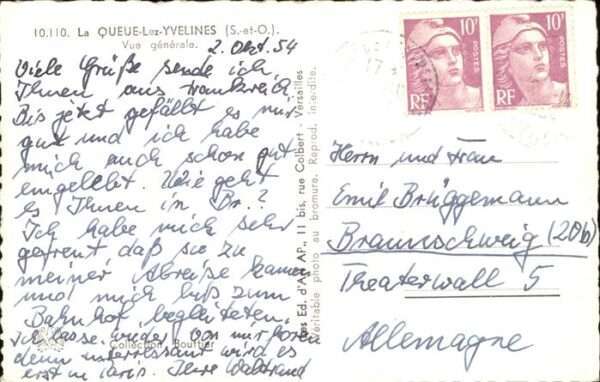 10.110. La QUEUE-Lez-YVELINES (S.-et-O.).
Vue générale.
2. Okt. 54
Viele Grüße sende ich
Ihnen aus Frankreich.
Bis jetzt gefällt es mir
gut und ich habe
mich auch schon gut
eingelebt. Wie geht
es Ihnen in Br.?
Ich habe mich sehr
gefreut daß sie zu
meiner Abreise kamen
und mich biß zum
Bahnhof begleiteten.
Ich lasse wieder von mir hören
denn interessant wird es
erst in Paris. Ihre Waltraud
Collection Bouttier
Les Ed. d'Art AP., 11 bis, rue Colbert - Versailles
Véritable photo au bromure. Reprod. interdite.
10F
POSTES
RF
10F
POSTES
RF
Herrn und Frau
Emil Brüggemann
Braunschweig (20b)
Theaterwall 5
Allemagne